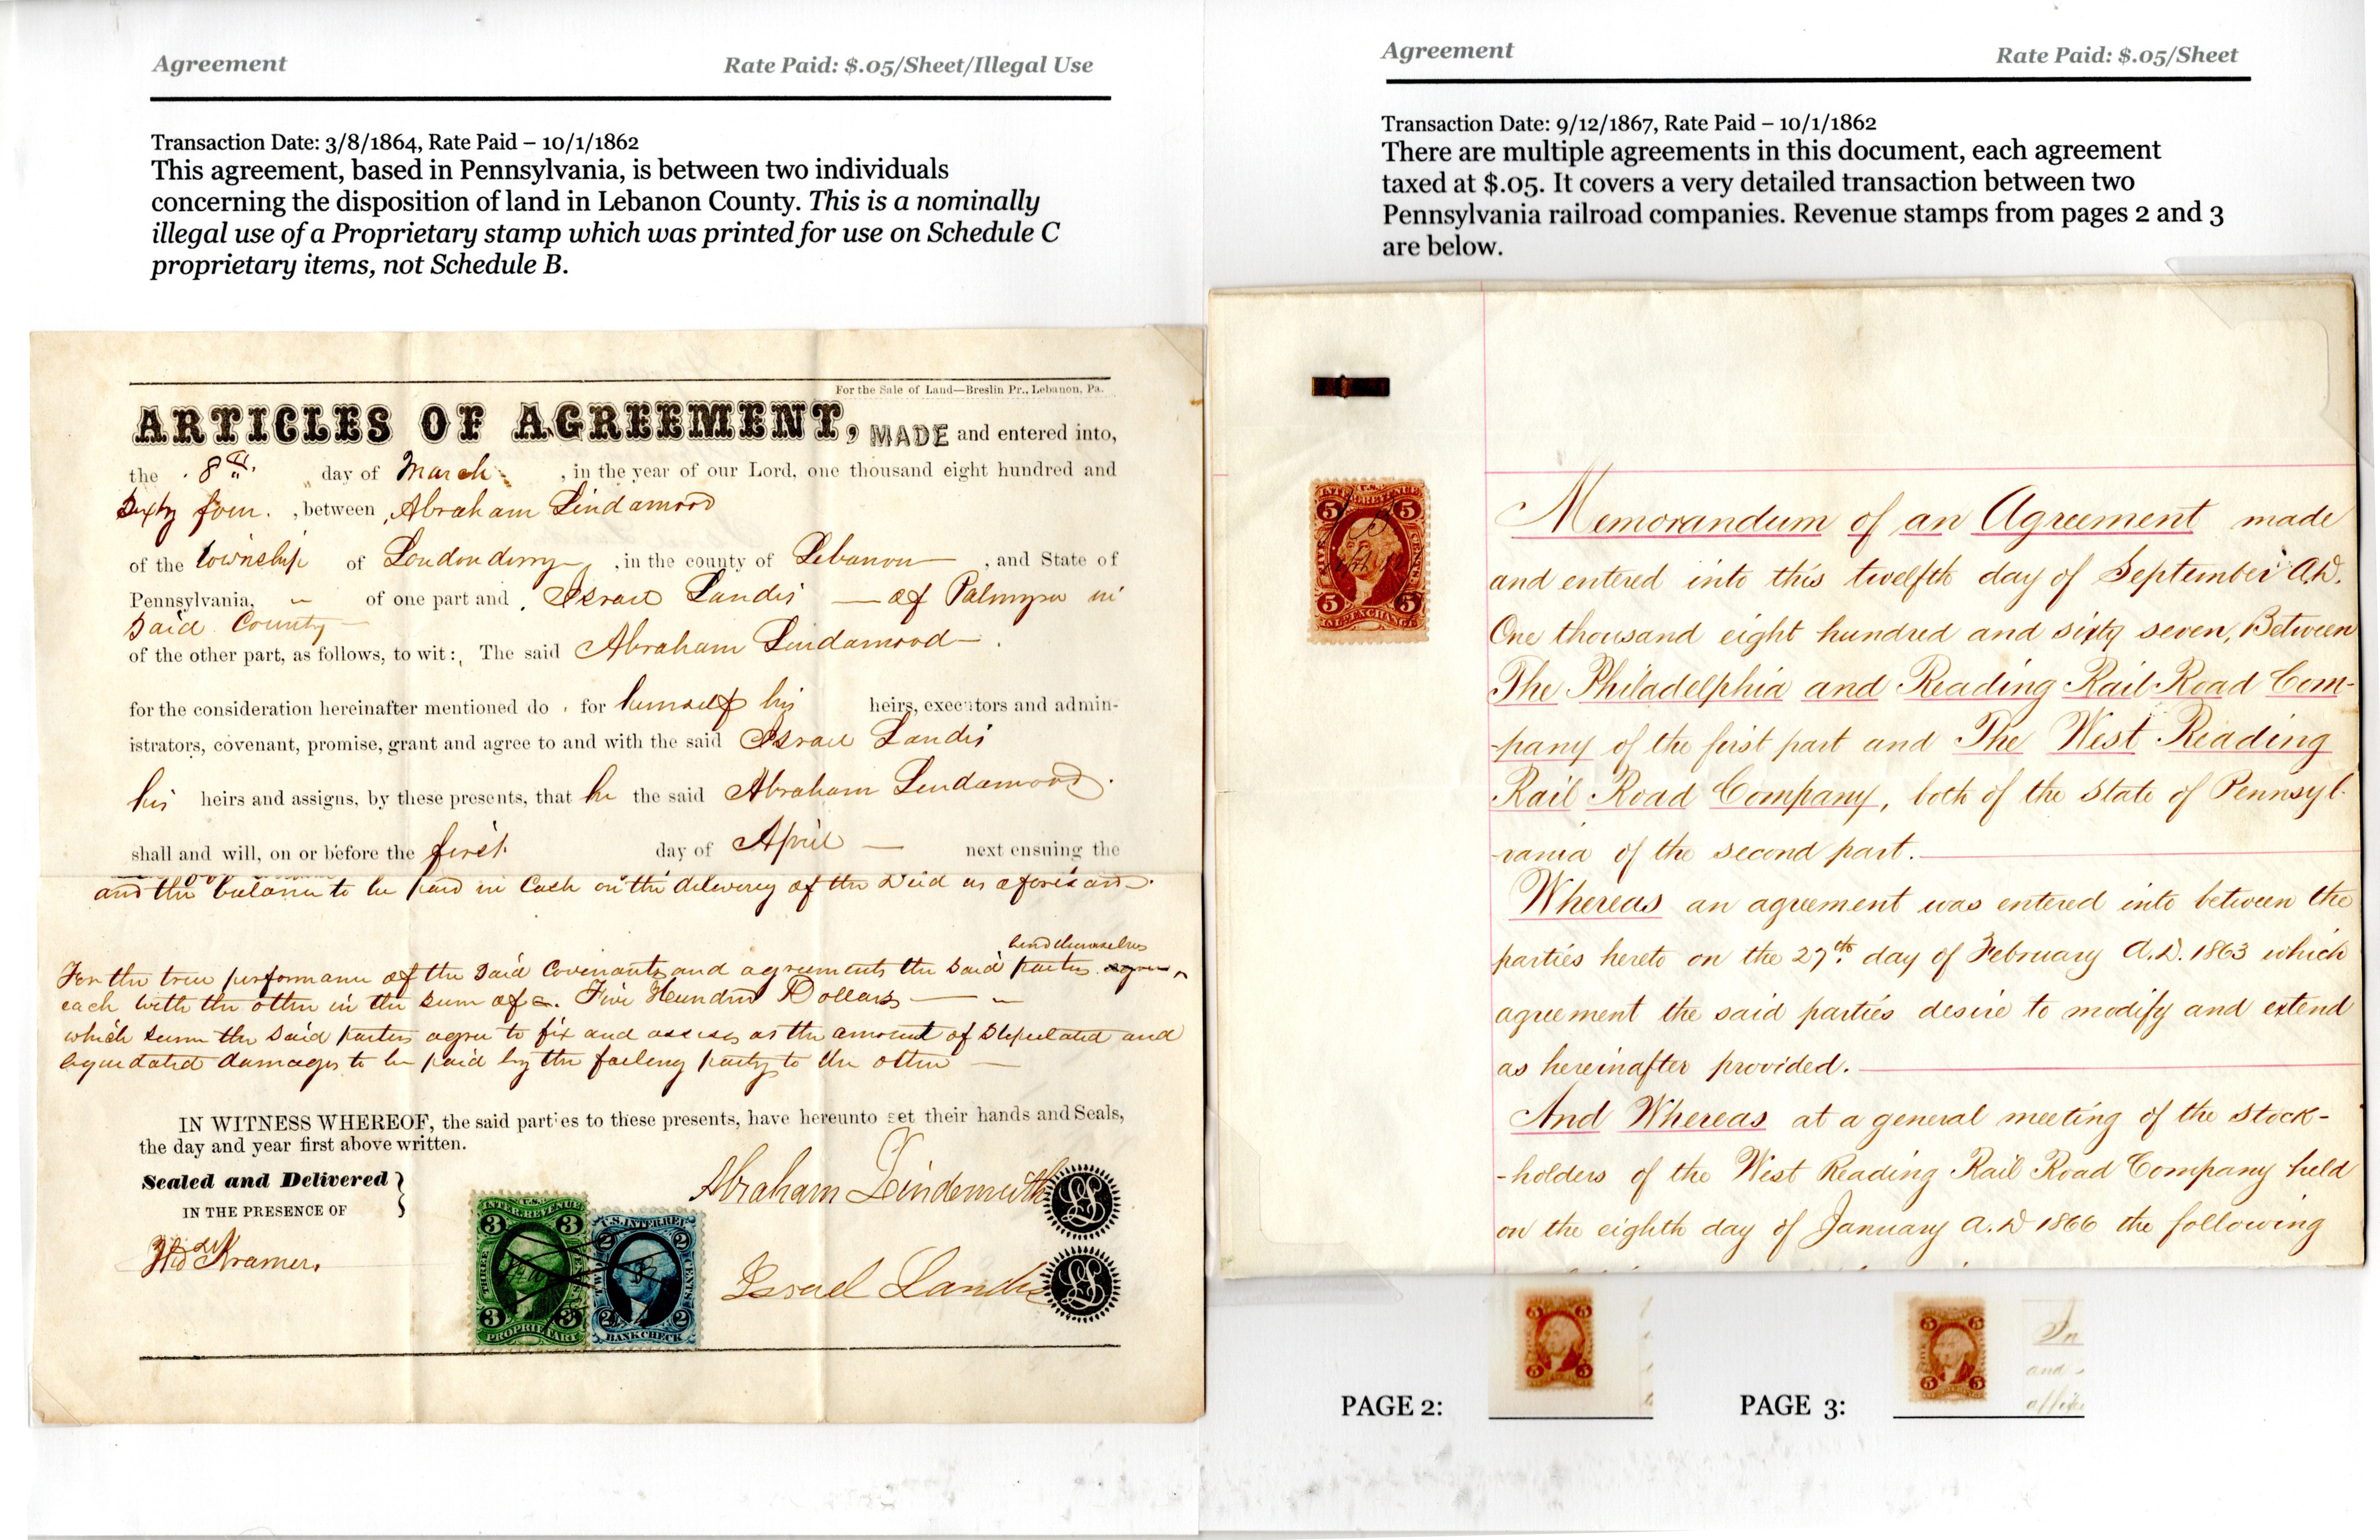 Agreement
Rate Paid: $.05/Sheet/Illegal Use
Transaction Date: 3/8/1864, Rate Paid – 10/1/1862
This agreement, based in Pennsylvania, is between two individuals
concerning the disposition of land in Lebanon County. This is a nominally
illegal use of a Proprietary stamp which was printed for use on Schedule C
proprietary items, not Schedule B.
For the Sale of Land—Breslin Pr., Lebanon, Pa.
ARTICLES OF AGREEMENT, MADE and entered into,
the 8th day of March, in the year of our Lord, one thousand eight hundred and
Sixty four. , between Abraham Lindamood
of the township of Londonderry , in the county of Lebanon , and State of
Pennsylvania, of one part and Israel Landis — of Palmyra in
Said County
of the other part, as follows, to wit: The said Abraham Lindamood
for the consideration hereinafter mentioned do for himself his heirs, executors and admin-
istrators, covenant, promise, grant and agree to and with the said Israel Landis
his heirs and assigns, by these presents, that he the said Abraham Lindamood
shall and will, on or before the first day of April — next ensuing the
and the balance to be paid in Cash on the delivery of the Deed as aforesaid.
bind themselves
For the true performance of the Said Covenants and agreements the Said parties agree
each with the other in the Sum of Five Hundred Dollars
which Sum the Said parties agree to fix and assess as the amount of Stipulated and
liquidated damages to be paid by the failing party to the other
IN WITNESS WHEREOF, the said parties to these presents, have hereunto set their hands and Seals,
the day and year first above written.
Sealed and Delivered
IN THE PRESENCE OF
Kramer.
Abraham Lindemuth
LS
Israel Landis
LS
U.S. INTER. REVENUE
3 3
THREE CENTS
3 3
PROPRIETARY
U.S. INTER. REV.
2 2
TWO CENTS
2 2
BANK CHECK
Agreement
Rate Paid: $.05/Sheet
Transaction Date: 9/12/1867, Rate Paid – 10/1/1862
There are multiple agreements in this document, each agreement
taxed at $.05. It covers a very detailed transaction between two
Pennsylvania railroad companies. Revenue stamps from pages 2 and 3
are below.
U.S. INTER. REVENUE
5 5
FIVE CENTS
5 5
Memorandum of an Agreement made
and entered into this twelfth day of September A.D.
One thousand eight hundred and sixty seven, Between
The Philadelphia and Reading Rail Road Com-
-pany of the first part and The West Reading
Rail Road Company, both of the State of Pennsyl-
-vania of the second part.
Whereas an agreement was entered into between the
parties hereto on the 27th day of February A.D. 1863 which
agreement the said parties desire to modify and extend
as hereinafter provided.
And Whereas at a general meeting of the Stock-
-holders of the West Reading Rail Road Company held
on the eighth day of January A.D 1866 the following
PAGE 2:
5 5
5 5
PAGE 3:
5 5
5 5
In
and